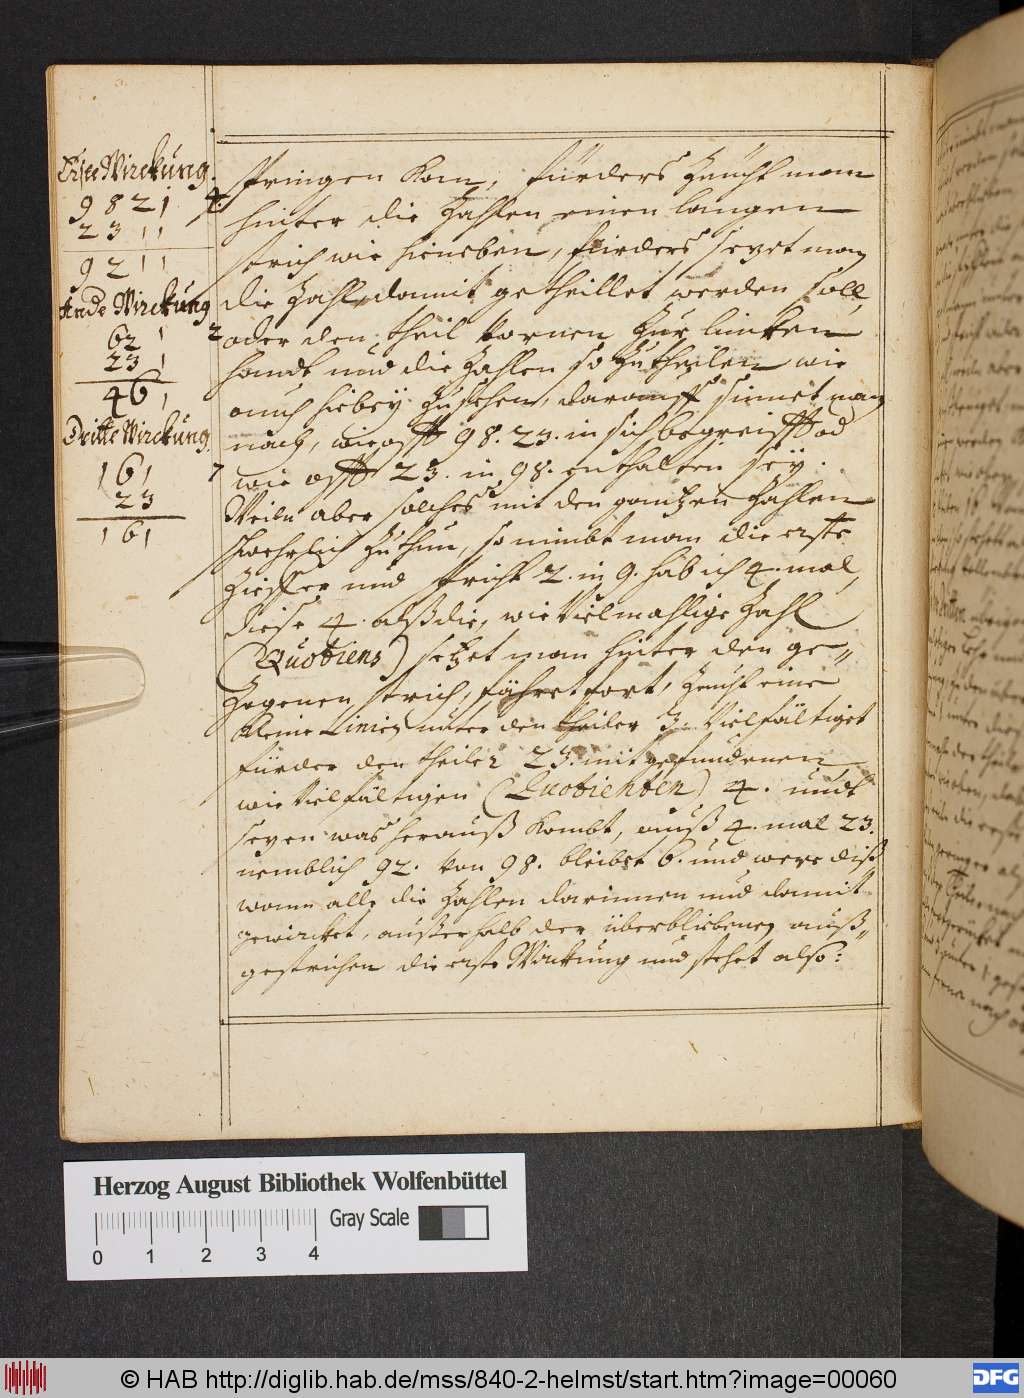 Erste Wirckung.
9 8 2 1 4
2 3 1 1
9 2 1 1
Ande Wirckung
62 1 2
23 1
46 1
Dritte Wirckung.
161 7
23
161
springen kom, fürders Zeücht man
hinter die Zahlen einen langen
strich wie hieneben, fürders sezet man
die Zahl, damit getheillet werden soll,
oder den theil vornen Zur lincken
handt und die Zahlen so Zutheilen wie
auch hiebey Zusehen, darauff sinnet man
nach, wie offt 98. 23. in sich begreifft od
wie offt 23. in 98. enthalten seÿ.
Weiln aber solches mit den gantzen Zahlen
schwehrlich Zuthun, so nimbt man die erste
Zieffer und spricht 2. in 9. hab ich 4. mal,
diese 4. alß die, wie vielmahlige Zahl
(Quotiens) setzet man hinter den ge„
Zogenen strich, fähret fort, Zeücht eine
kleine Linien unter den theiler 3. Vielfältiget
fürder den theiler 23. mit gefundenen
wie Vielfältigen (Quotienten) 4. undt
sezen was herauß kombt, auß 4. mal 23.
nemblich 92. von 98. bleibet 6. und were diß
wann alle die Zahlen darinnen und damit
gewircket, außerhalb der überbliebenen auß„
gestrichen die erste Wirckung und stehet also:
Herzog August Bibliothek Wolfenbüttel
Gray Scale
0 1 2 3 4
© HAB http://diglib.hab.de/mss/840-2-helmst/start.htm?image=00060
DFG